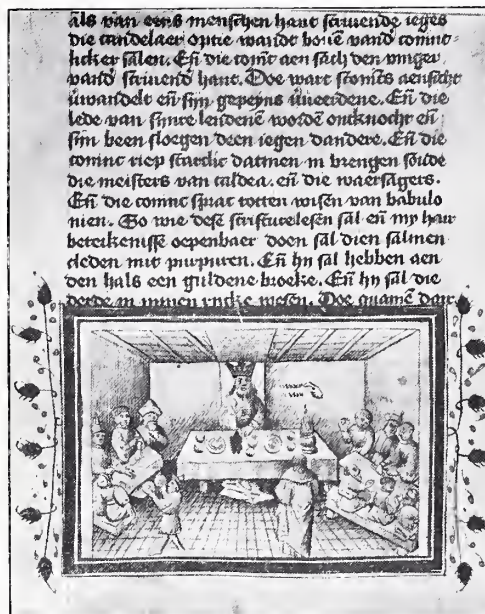 als van eens menschen hant scriuende ieges
die candelaer optie wandt bouē vand cōninc
licker salen. Eñ die cōinc aen sach den vinger
vand scriuend hant. Doe wart scōincs aenscht
v̄wandelt eñ sijn gepeyns v̄ueerdene. Eñ die
lede van sijnre lendenē wordē ontknocht eñ
sijn been sloegen deen iegen dandere. Eñ die
coninc riep starclic datmen in brengen soude
die meisters van caldea. eñ die waersagers.
Eñ die coninc sprac totten wisen van babulo
nien. So wie dese scrifture lesen sal eñ my haer
beteikenisse oepenbaer doen sal dien salmen
cleden mit purpuren. Eñ hy sal hebben aen
den hals een guldene broeke. Eñ hy sal die
derde in minen rycke wesen. Doe quamē dar